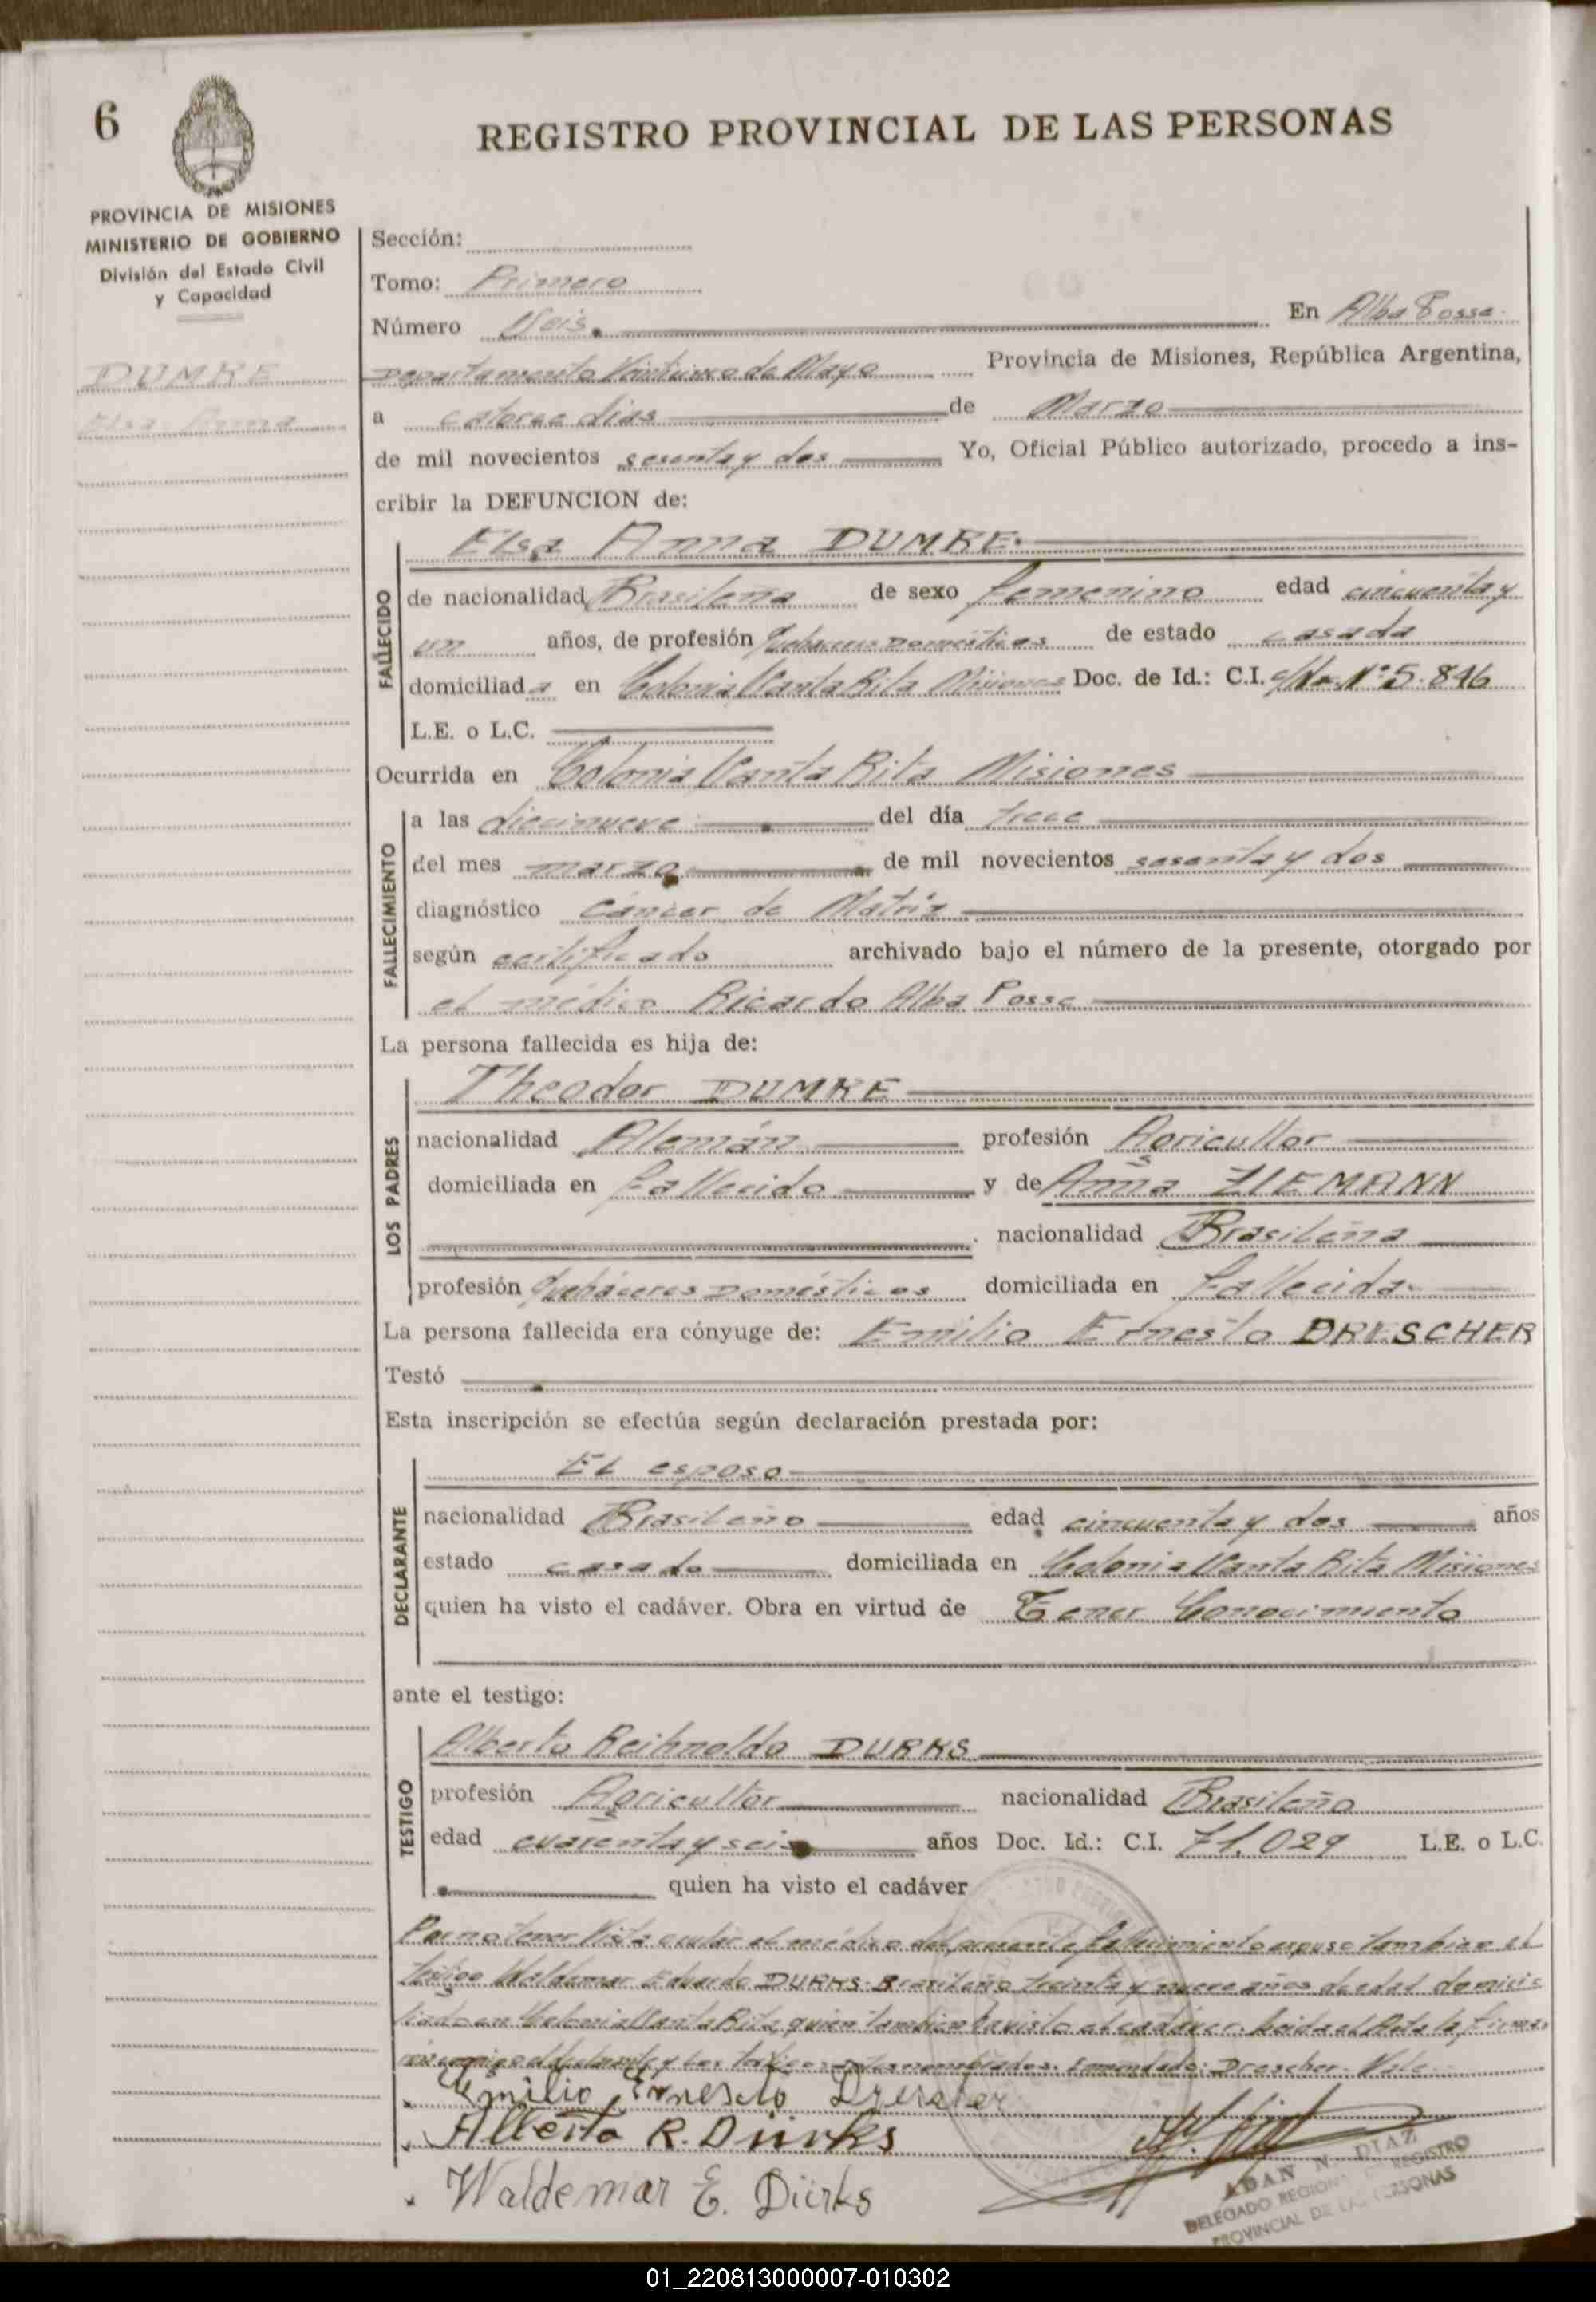 6
REGISTRO PROVINCIAL DE LAS PERSONAS
PROVINCIA DE MISIONES
MINISTERIO DE GOBIERNO
División del Estado Civil
y Capacidad
DUMKE
Elsa Anna
Sección:
Tomo: Primero
Número Seis. En Alba Posse
Departamento Veinticinco de Mayo Provincia de Misiones, República Argentina,
a catorce dias de Marzo
de mil novecientos sesenta y dos Yo, Oficial Público autorizado, procedo a ins-
cribir la DEFUNCION de:
Elsa Anna DUMKE.
FALLECIDO
de nacionalidad Brasileña de sexo femenino edad cincuenta y
un años, de profesión Quehaceres Domésticos de estado casada
domiciliada en Colonia Santa Rita Misiones Doc. de Id.: C.I. Nº 5.846
L.E. o L.C.
Ocurrida en Colonia Santa Rita Misiones
FALLECIMIENTO
a las diecinueve del día trece
del mes marzo de mil novecientos sesenta y dos
diagnóstico Cáncer de Matríz
según certificado archivado bajo el número de la presente, otorgado por
el médico Ricardo Alba Posse
La persona fallecida es hija de:
LOS PADRES
Theodor DUMKE
nacionalidad Alemán profesión Agricultor
domiciliada en fallecido y de Anna ZIEMANN
nacionalidad Brasileña
profesión Quehaceres Domésticos domiciliada en fallecida
La persona fallecida era cónyuge de: Emilio Ernesto DRESCHER
Testó
Esta inscripción se efectúa según declaración prestada por:
DECLARANTE
El esposo
nacionalidad Brasileño edad cincuenta y dos años
estado casado domiciliada en Colonia Santa Rita Misiones
quien ha visto el cadáver. Obra en virtud de Tener Conocimiento
ante el testigo:
TESTIGO
Alberto Reihnoldo DURKS
profesión Agricultor nacionalidad Brasileño
edad cuarenta y seis años Doc. Id.: C.I. 71.029 L.E. o L.C.
quien ha visto el cadáver
Por no tener vista ocular el médico del presente fallecimiento expuso tambien el
testigo Waldemar Eduardo DURKS Brasileño treinta y nueve años de edad domici-
liado en Colonia Santa Rita, quien tambien ha visto el cadáver. Leida el Acta la firman
conmigo el declarante y los testigos antes nombrados. Enmendado: Drescher. Vale
Emilio Ernesto Drescher
Alberto R. Dürks
Waldemar E. Dürks
ADAN N. DIAZ
DELEGADO REGIONAL REGISTRO
PROVINCIAL DE LAS PERSONAS
01_220813000007-010302